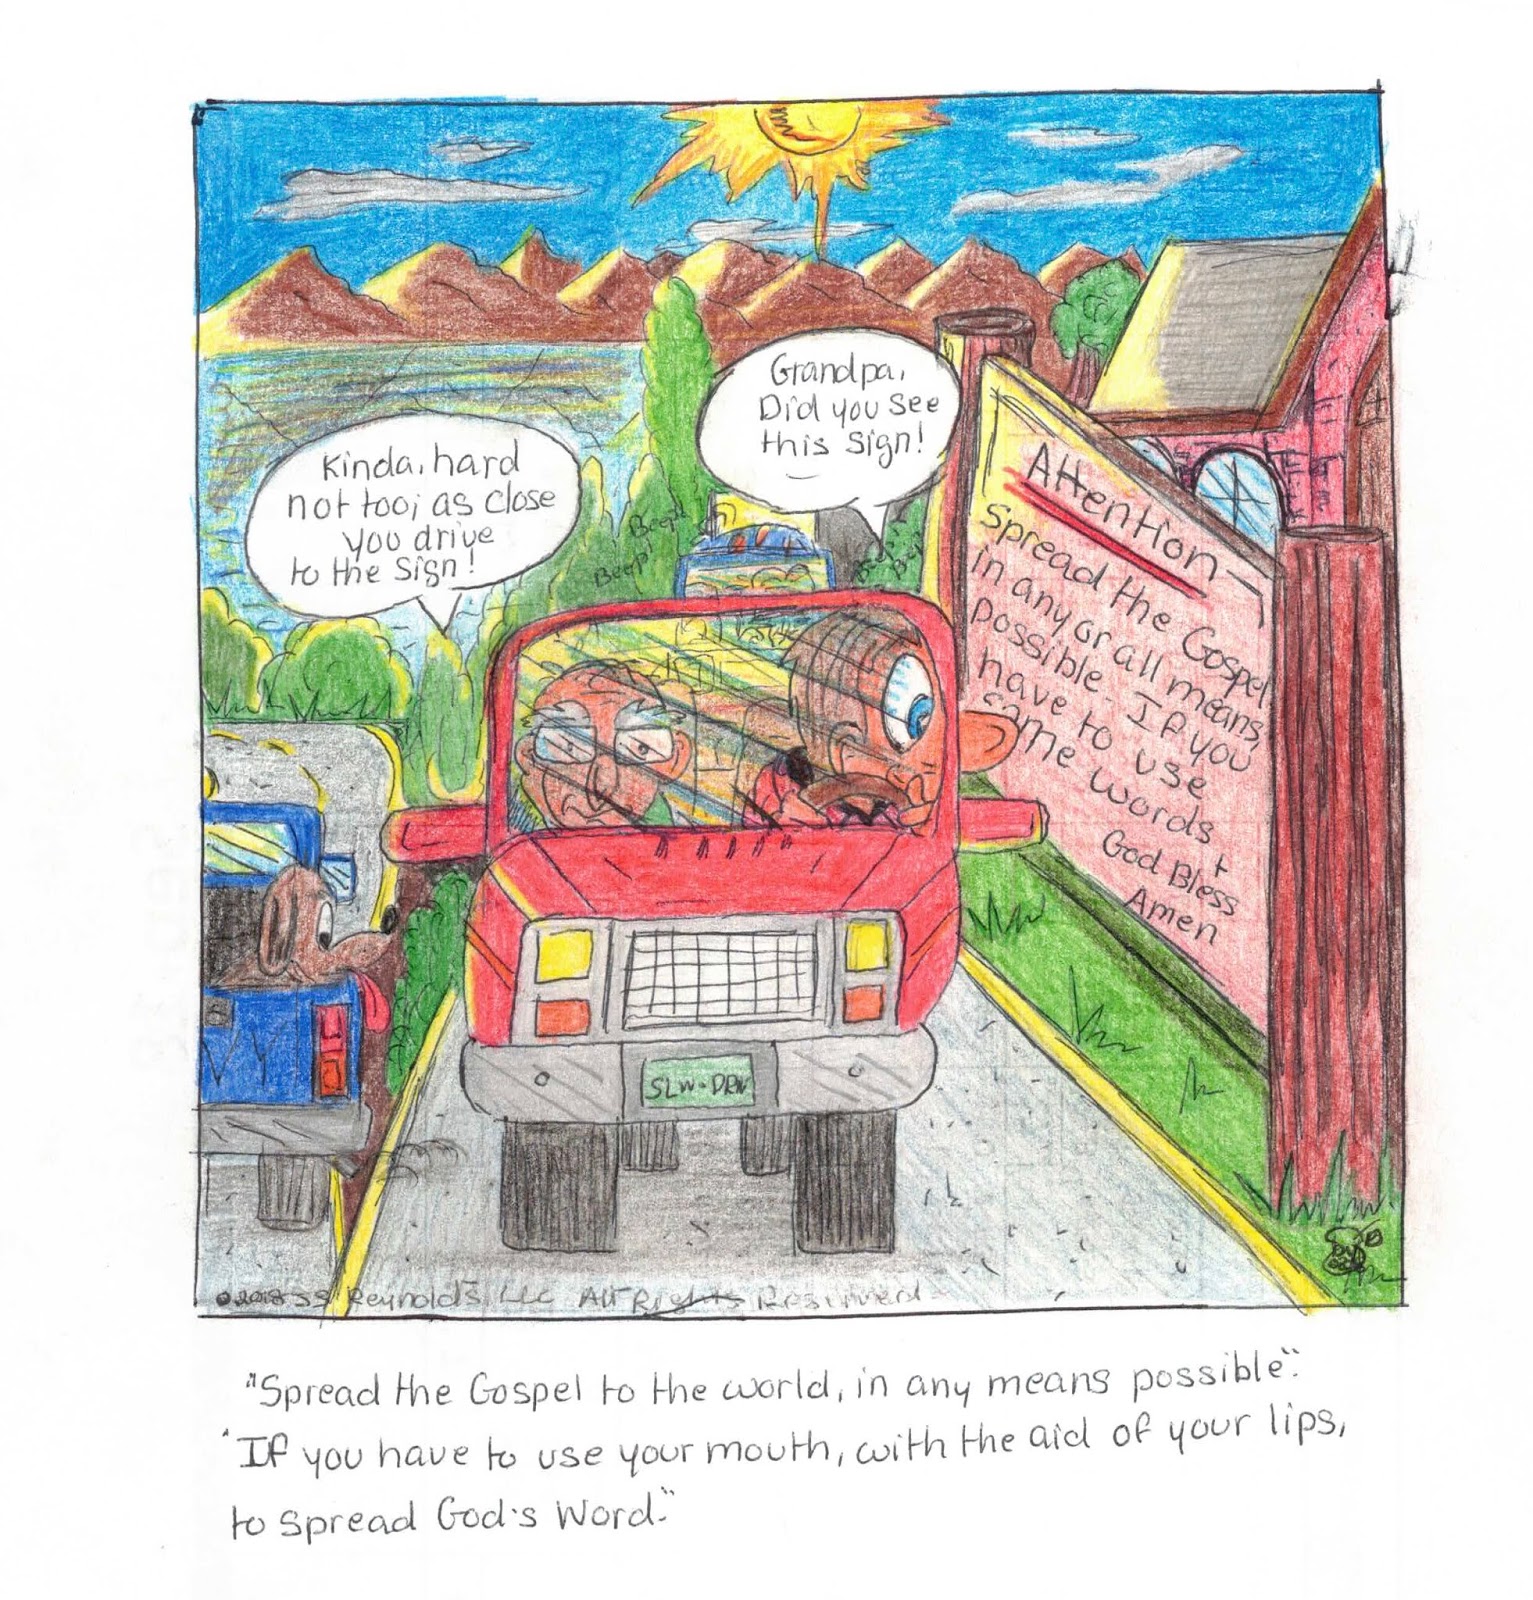 Grandpa,
Did you see
this sign!
Kinda, hard
not too; as close
you drive
to the sign!
Beep!
Beep!
Beep!
Beep!
Attention—
Spread the Gospel
in any or all means,
possible. If you
have to use
some words
God Bless +
Amen
SLW-DRV
©2018 SS Reynolds LLC All Rights Reserved
"Spread the Gospel to the world, in any means possible".
"If you have to use your mouth, with the aid of your lips,
to spread God's Word."